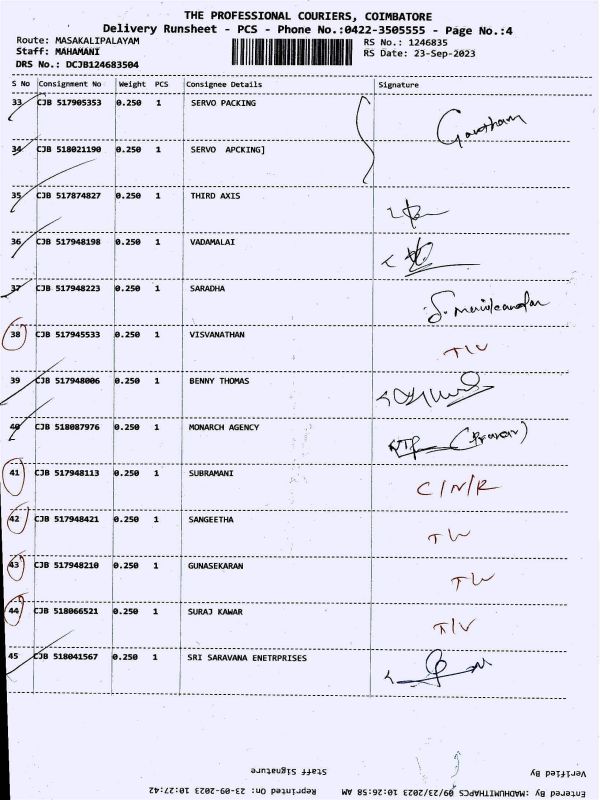 THE PROFESSIONAL COURIERS, COIMBATORE
Delivery Runsheet - PCS - Phone No.:0422-3505555 - Page No.:4
Route: MASAKALIPALAYAM RS No.: 1246835
Staff: MAHAMANI RS Date: 23-Sep-2023
DRS No.: DCJB124683504
S No Consignment No Weight PCS Consignee Details Signature
33 CJB 517905353 0.250 1 SERVO PACKING Gowtham
34 CJB 518021190 0.250 1 SERVO APCKING]
35 CJB 517874827 0.250 1 THIRD AXIS
36 CJB 517948198 0.250 1 VADAMALAI
37 CJB 517948223 0.250 1 SARADHA
38 CJB 517945533 0.250 1 VISVANATHAN
39 CJB 517948006 0.250 1 BENNY THOMAS
40 CJB 518087976 0.250 1 MONARCH AGENCY
41 CJB 517948113 0.250 1 SUBRAMANI C/N/R
42 CJB 517948421 0.250 1 SANGEETHA
43 CJB 517948210 0.250 1 GUNASEKARAN
44 CJB 518066521 0.250 1 SURAJ KAWAR
45 CJB 518041567 0.250 1 SRI SARAVANA ENETRPRISES
Verified By Staff Signature
Entered By :MADHUMITHAPCS 09/23/2023 10:26:58 AM Reprinted On: 23-09-2023 10:27:42